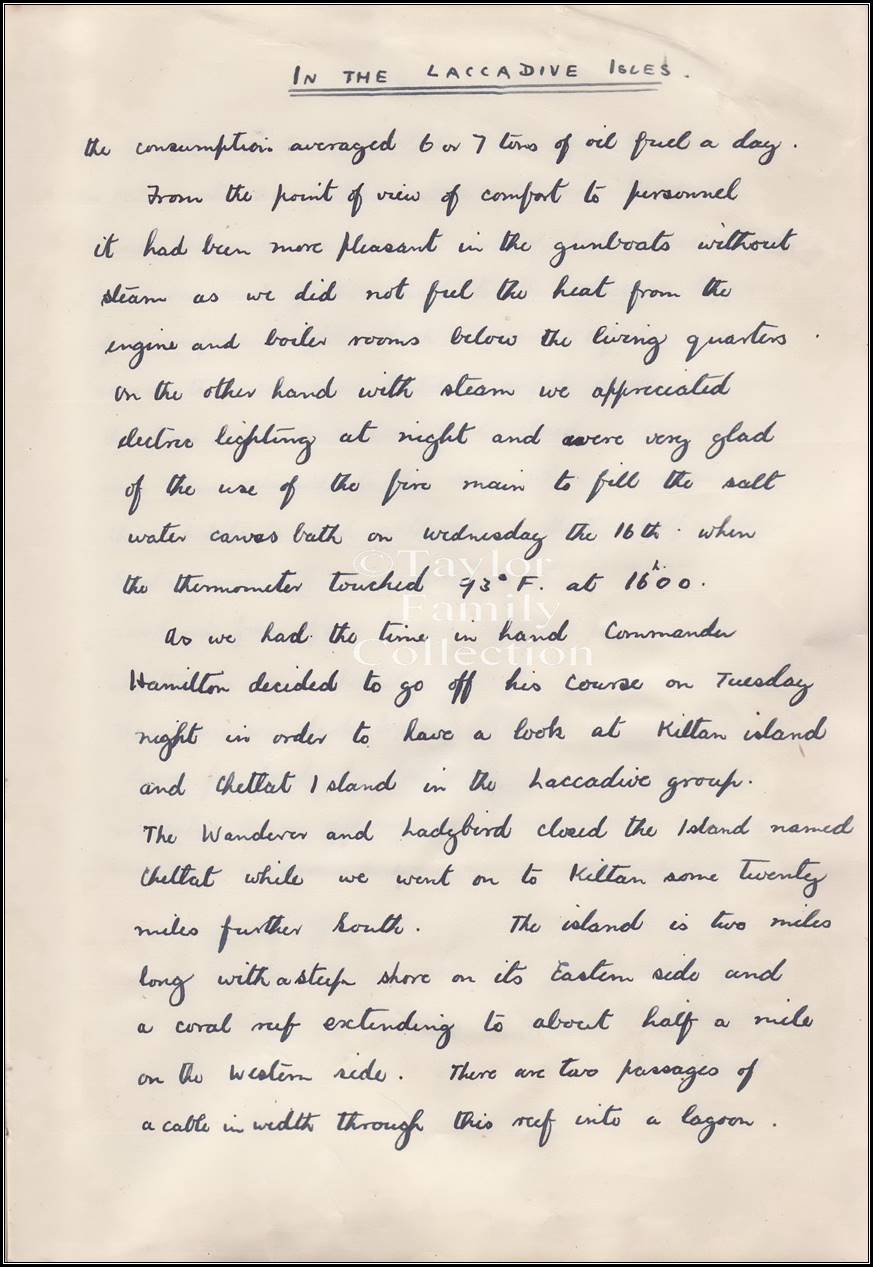 IN THE LACCADIVE ISLES.
the consumption averaged 6 or 7 tons of oil fuel a day.
From the point of view of comfort to personnel
it had been more pleasant in the gunboats without
steam as we did not feel the heat from the
engine and boiler rooms below the living quarters.
On the other hand with steam we appreciated
electric lighting at night and were very glad
of the use of the fire main to fill the salt
water canvas bath on Wednesday the 16th. when
the thermometer touched 93° F. at 16h00.
©Taylor
Family
Collection
As we had the time in hand Commander
Hamilton decided to go off his course on Tuesday
night in order to have a look at Kiltan island
and Chettat Island in the Laccadive group.
The Wanderer and Ladybird closed the Island named
Chettat while we went on to Kiltan some twenty
miles further South. The island is two miles
long with a steep shore on its Eastern side and
a coral reef extending to about half a mile
on the Western side. There are two passages of
a cable in width through this reef into a lagoon.